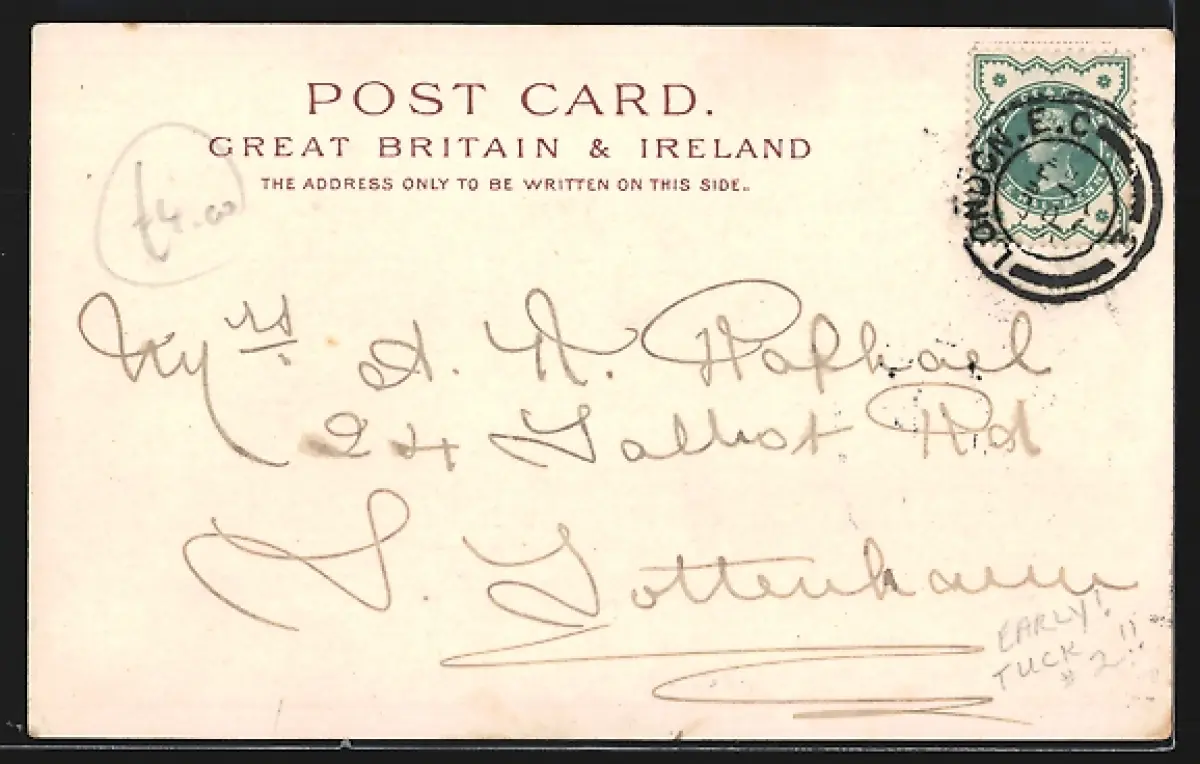 POST CARD.
GREAT BRITAIN & IRELAND
THE ADDRESS ONLY TO BE WRITTEN ON THIS SIDE.
LONDON.E.C
£4.00
Mrs A. N. Raphael
24 Talbot Rd
S. Tottenham
EARLY!
TUCK
#2!!